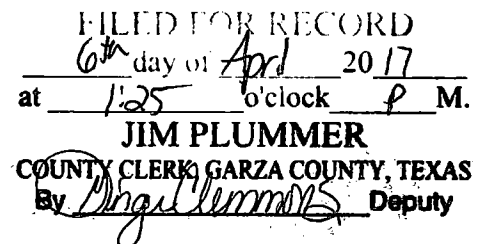 FILED FOR RECORD
6th day of April 20 17
at 1:25 o'clock P M.
JIM PLUMMER
COUNTY CLERK, GARZA COUNTY, TEXAS
By Clemmons Deputy